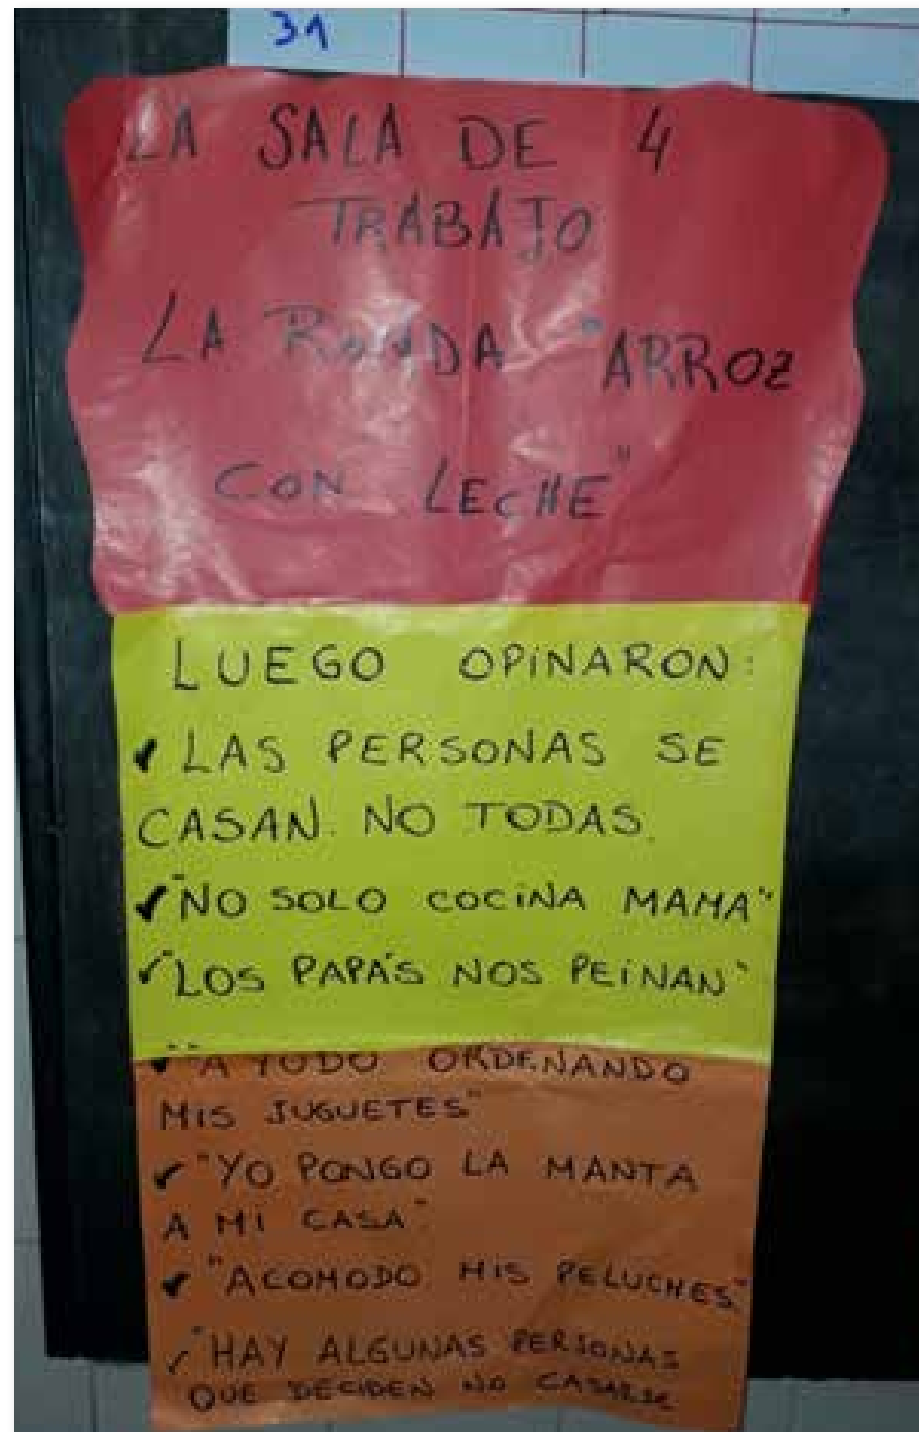 31
LA SALA DE 4
TRABAJO
LA RONDA "ARROZ
CON LECHE"
LUEGO OPINARON:
✔ LAS PERSONAS SE
CASAN. NO TODAS.
✔ "NO SOLO COCINA MAMA"
✓ "LOS PAPÁS NOS PEINAN"
✔ "AYUDO ORDENANDO
MIS JUGUETES"
✔ "YO PONGO LA MANTA
A MI CASA"
✔ "ACOMODO MIS PELUCHES"
✓ "HAY ALGUNAS PERSONAS
QUE DECIDEN NO CASARSE